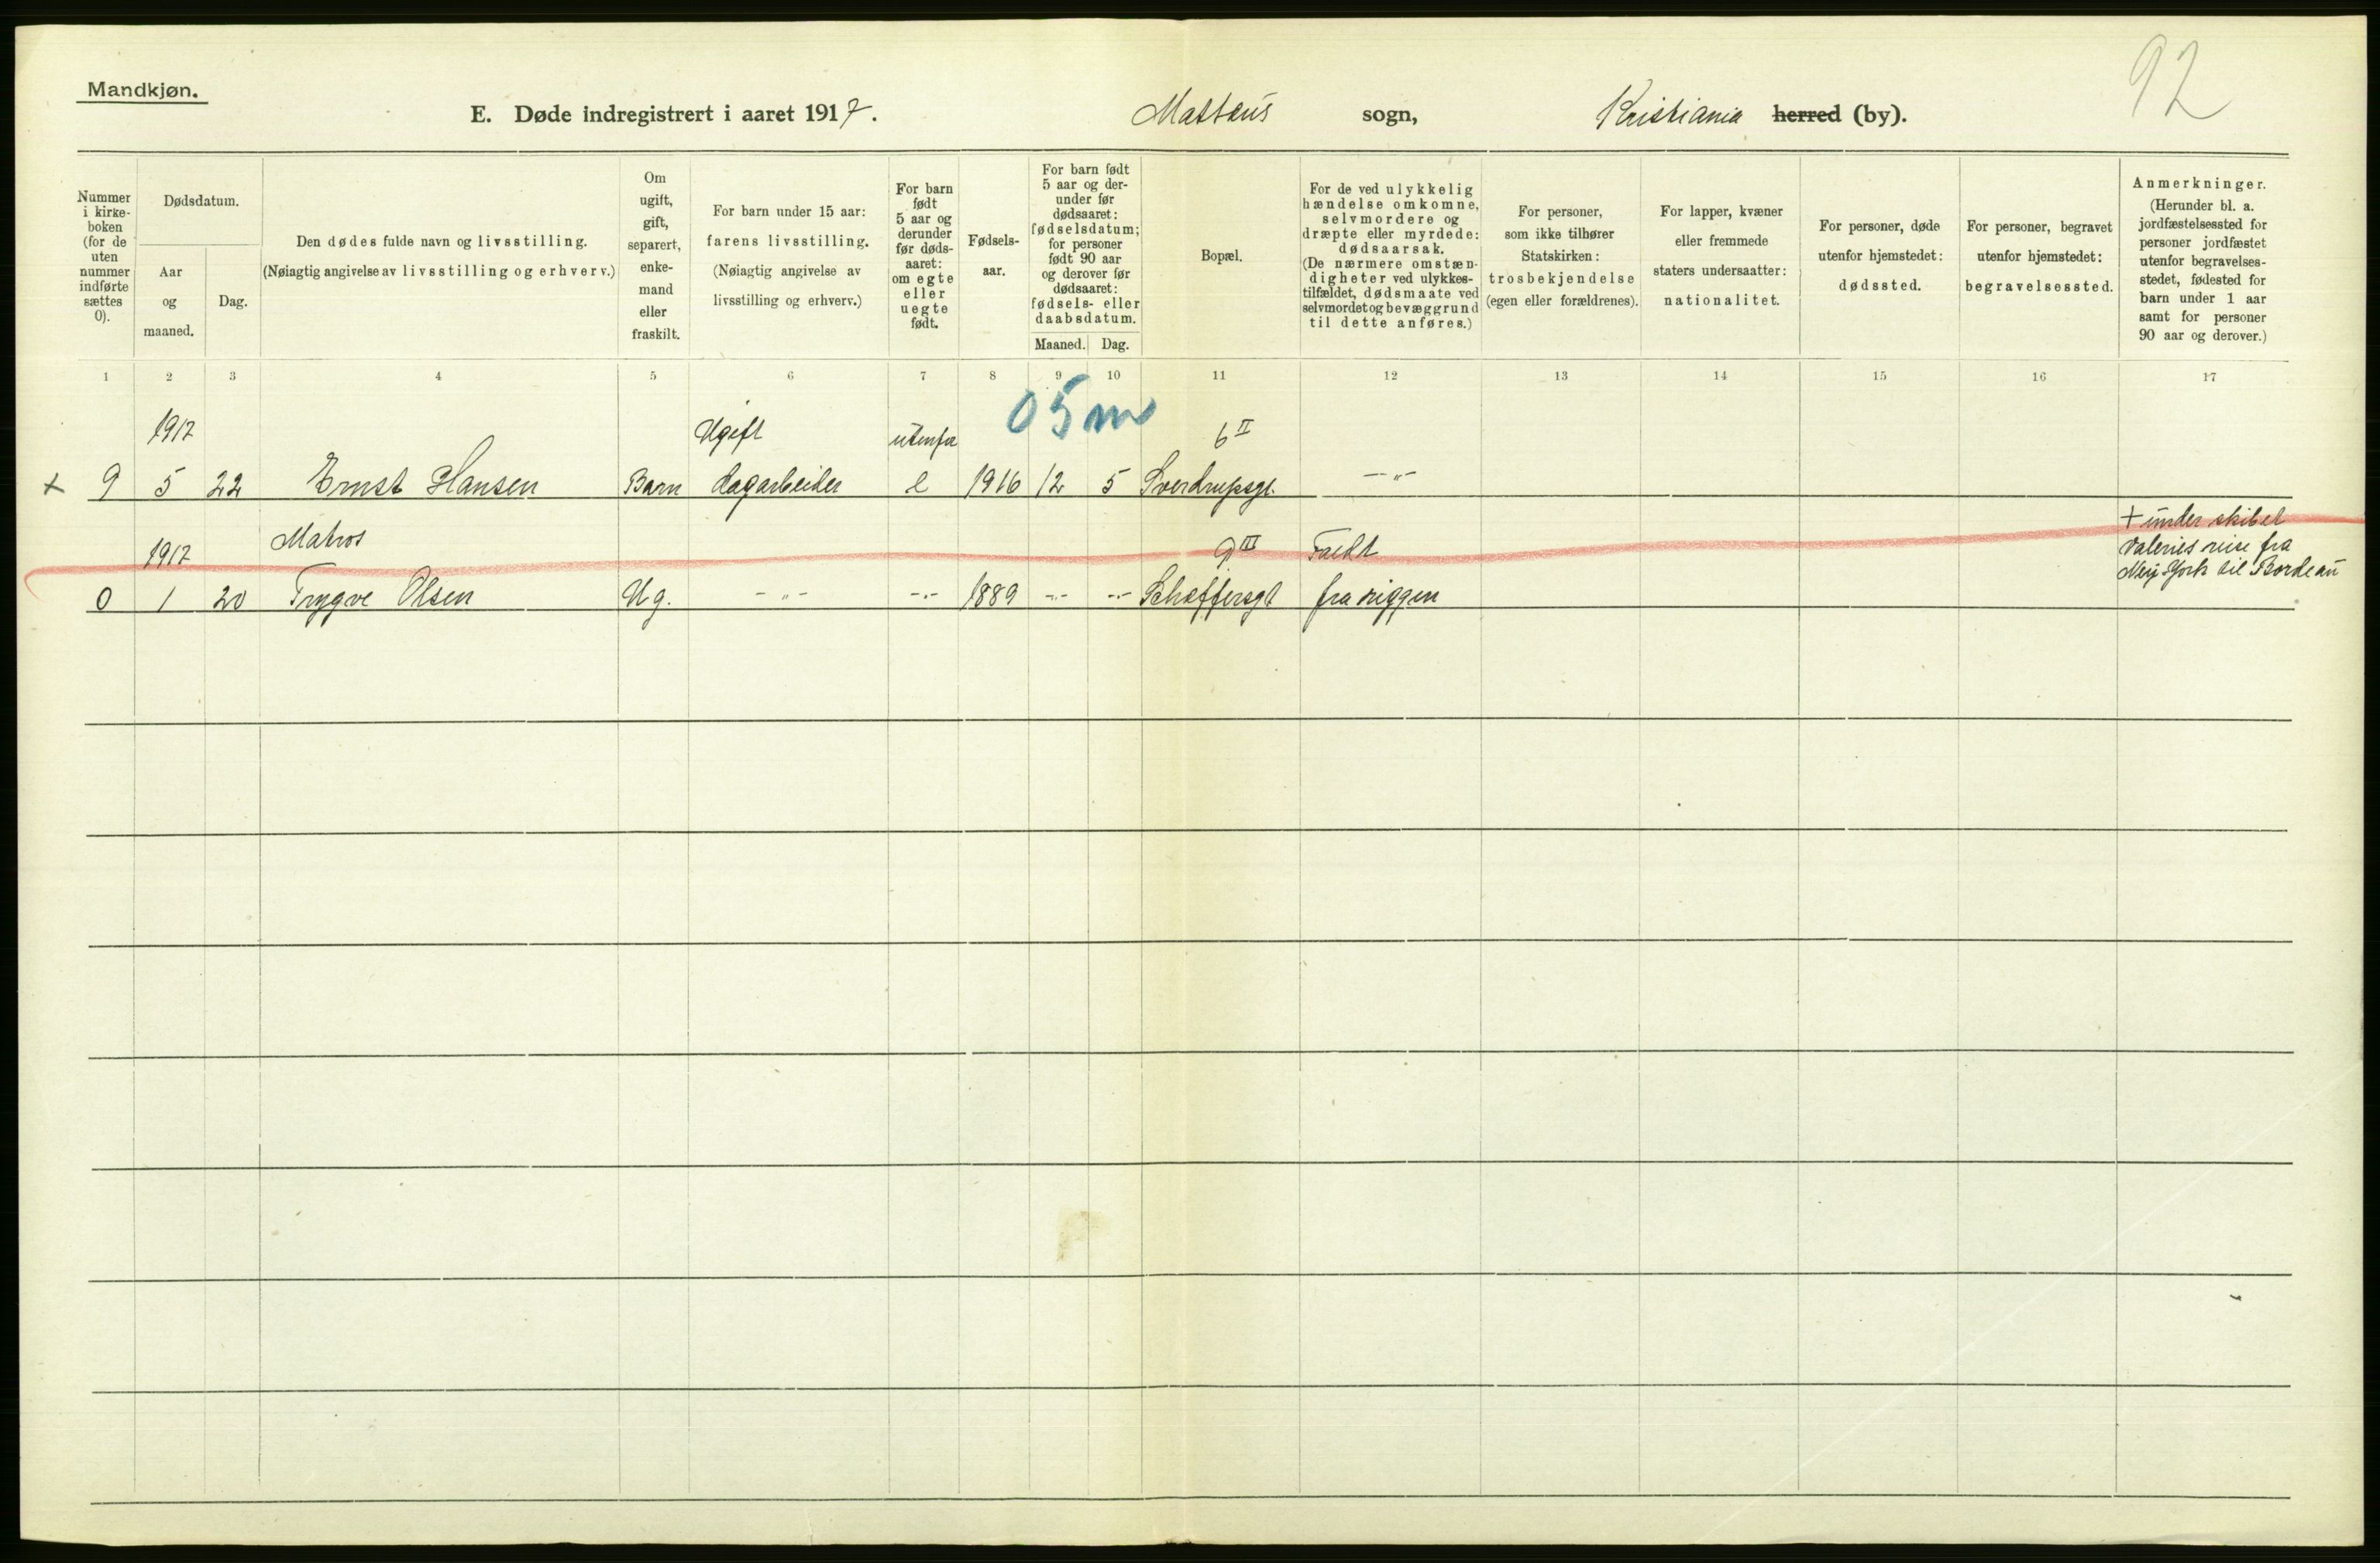 92
Mandkjøn.
E. Døde indregistrert i aaret 1917. Mattæus sogn, Kristiania herred (by).
Nummer
i kirke-
boken
(for de
uten
nummer
indførte
sættes
0).
Dødsdatum.
Aar
og
maaned.
Dag.
Den dødes fulde navn og livsstilling.
(Nøiagtig angivelse av livsstilling og erhverv.)
Om
ugift,
gift,
separert,
enke-
mand
eller
fraskilt.
For barn under 15 aar:
farens livsstilling.
(Nøiagtig angivelse av
livsstilling og erhverv.)
For barn
født
5 aar og
derunder
før døds-
aaret:
om egte
eller
uegte
født.
Fødsels-
aar.
For barn født
5 aar og der-
under før
dødsaaret:
fødselsdatum;
for personer
født 90 aar
og derover før
dødsaaret:
fødsels- eller
daabsdatum.
Maaned. Dag.
Bopæl.
For de ved ulykkelig
hændelse omkomne,
selvmordere og
dræpte eller myrdede:
dødsaarsak.
(De nærmere omstæn-
digheter ved ulykkes-
tilfældet, dødsmaate ved
selvmordet og bevæggrund
til dette anføres.)
For personer,
som ikke tilhører
Statskirken:
trosbekjendelse
(egen eller forældrenes).
For lapper, kvæner
eller fremmede
staters undersaatter:
nationalitet.
For personer, døde
utenfor hjemstedet:
dødssted.
For personer, begravet
utenfor hjemstedet:
begravelsessted.
Anmerkninger.
(Herunder bl. a.
jordfæstelsessted for
personer jordfæstet
utenfor begravelses-
stedet, fødested for
barn under 1 aar
samt for personer
90 aar og derover.)
1 2 3 4 5 6 7 8 9 10 11 12 13 14 15 16 17
05 m
1917 Ugift utenfor 6 II
+ 9 5 22 Ernst Hansen Barn dagarbeider e 1916 12 5 Sverdrupsgt. -"-
Matros
+ under skibet
1917 9 III Faldt
Valeries reise fra
New York til Bordeau
0 1 20 Trygve Olsen Ug. -"- -"- 1889 -"- -"- Schæffersgt fra riggen